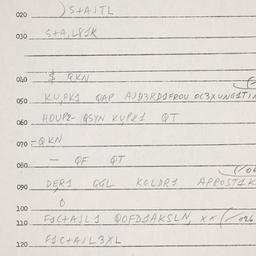 020 )S+AJTL
030 S+A,L81K
040 $ QKN
050 KU,PK1 QAP AJD3RD1FROU OC3XUNG1TI
060 HOUP2- QSYN KUPK1 QT
070 -QKN
080 - QF QT
090 DER1 GGL KCLDR1 APPOST1K
100 O
110 F1C+AJL1 QOFD1AKSLN, XX (/026
120 F1C+AJL3XL